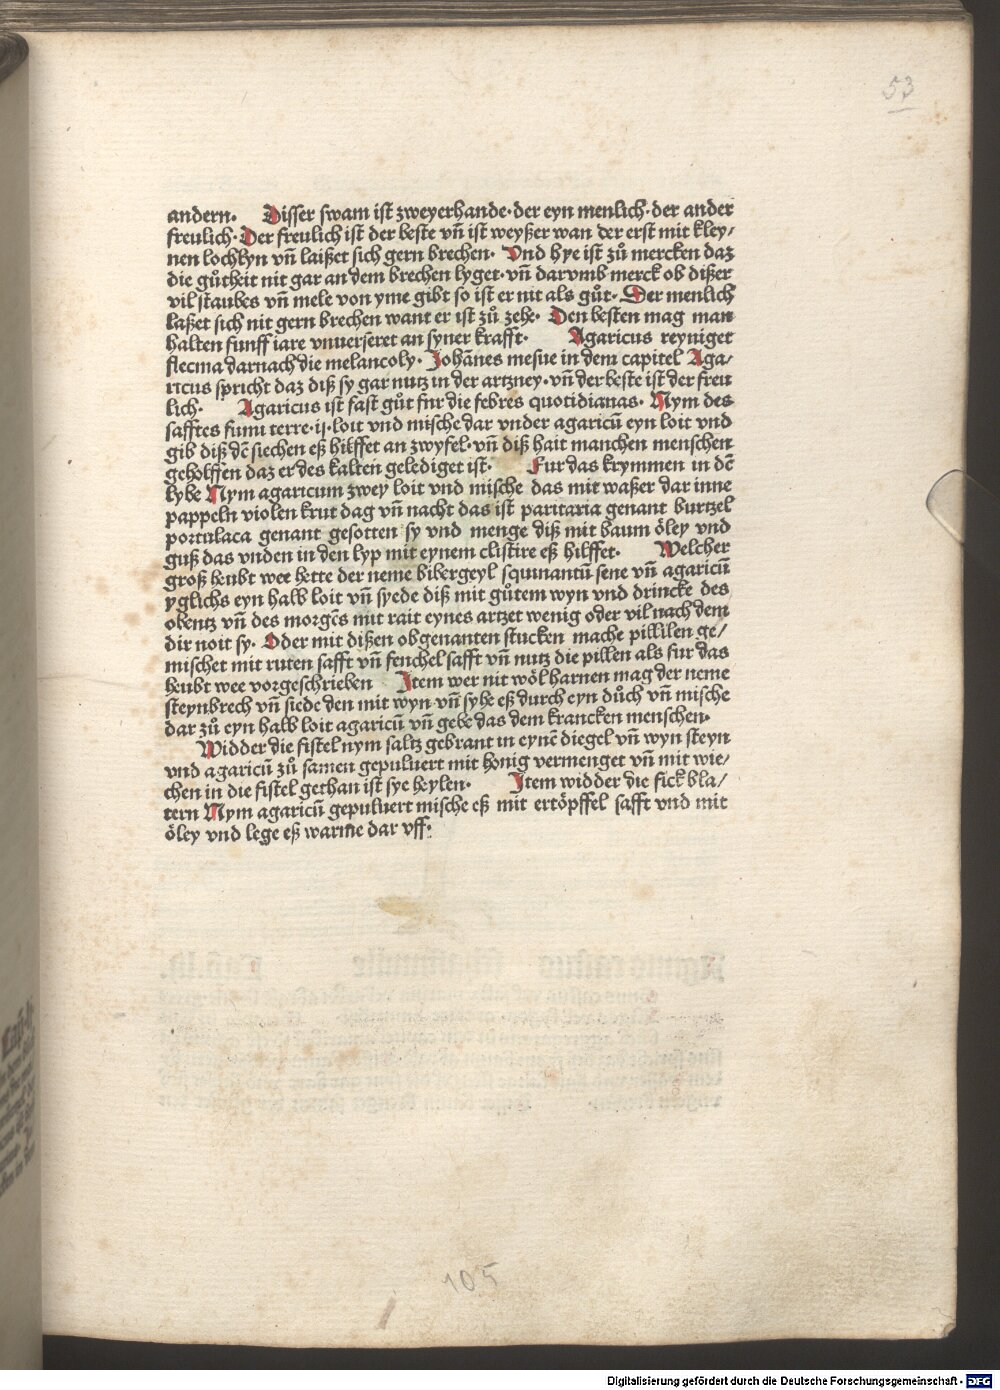 53
andern· Disser swam ist zweyerhande·der eyn menlich·der ander
freulich·Der freulich ist der beste vn̄ ist weyßer wan der erst mit kley/
nen lochlyn vn̄ laißet sich gern brechen· Vnd hye ist zů mercken daz
die gůtheit nit gar an dem brechen lyget·vn̄ darvmb merck ob dißer
vil staubes vn̄ mele von yme gibt so ist er nit als gůt·Der menlich
laßet sich nit gern brechen want er ist zů zehe· Den besten mag man
halten funff iare vnuerseret an syner krafft· Agaricus reyniget
flecma darnach die melancoly·Johānes mesue in dem capitel Aga/
ricus spricht daz diß sy gar nutz in der artzney·vn̄ der beste ist der freu
lich· Agaricus ist fast gůt fur die febres quotidianas·Nym des
safftes fumi terre·ij·loit vnd mische dar vnder agaricū eyn loit vnd
gib diß dē siechen eß hilffet an zwyfel·vn̄ diß hait manchen menschen
geholffen daz er des kalten gelediget ist· Fur das krymmen in dē
lybe Nym agaricum zwey loit vnd mische das mit waßer dar inne
pappeln violen krut dag vn̄ nacht das ist paritaria genant burtzel
portulaca genant gesotten sy vnd menge diß mit baum öley vnd
guß das vnden in den lyp mit eynem clistire eß hilffet· Welcher
groß heubt wee hette der neme bibergeyl squinantū sene vn̄ agaricū
yglichs eyn halb loit vn̄ syede diß mit gůtem wyn vnd drincke des
obentz vn̄ des morgēs mit rait eynes artzet wenig oder vil nach dem
dir noit sy·Oder mit dißen obgenanten stucken mache pillilen ge/
mischet mit ruten safft vn̄ fenchel safft vn̄ nutz die pillen als fur das
heubt wee vorgeschrieben Item wer nit wöl harnen mag der neme
steynbrech vn̄ siede den mit wyn vn̄ syhe eß durch eyn důch vn̄ mische
dar zů eyn halb loit agaricū vn̄ gebe das dem krancken menschen·
Widder die fistel nym saltz gebrant in eynē diegel vn̄ wyn steyn
vnd agaricū zů samen gepuluert mit honig vermenget vn̄ mit wie/
chen in die fistel gethan ist sye heylen· Item widder die fick bla/
tern Nym agaricū gepuluert mische eß mit ertöpffel safft vnd mit
öley vnd lege eß warme dar vff:
105
Digitalisierung gefördert durch die Deutsche Forschungsgemeinschaft - DFG